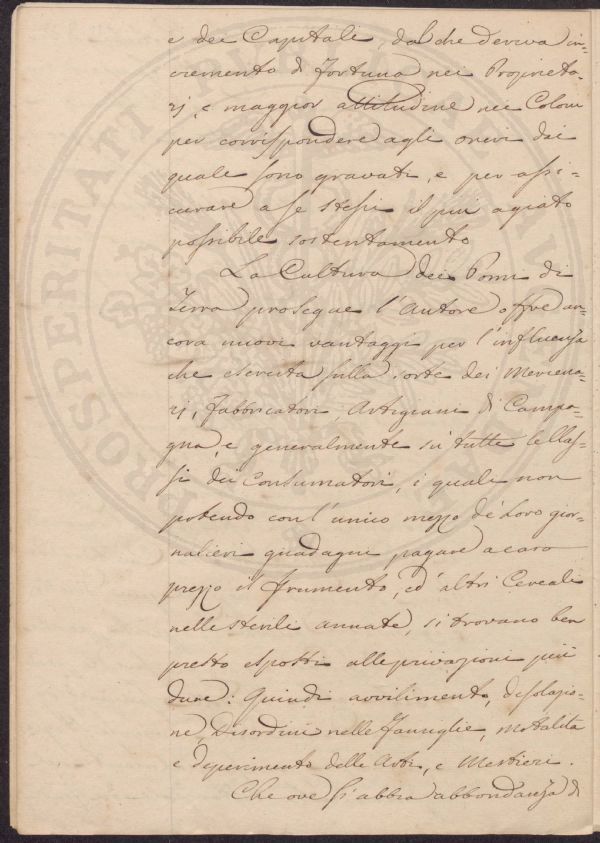 e dei Capitali, dal che deriva in=
cremento di fortuna nei Proprieta-
rj, e maggior attitudine nei Coloni
per corrispondere agli oneri dai
quale sono gravati, e per assi=
curare a se stessi il più agiato
possibile sostentamento
La Cultura dei Pomi di
Terra prosegue l'Autore offre an=
cora nuovi vantaggi per l'influenza
che esercita sulla sorte dei Mercena-
rj, Fabbricatori, Artigiani di Campa-
gna, e generalmente su tutte le Clas-
si dei Consumatori, i quali non
potendo con l'unico mezzo de' Loro gior-
nalieri guadagni pagare a caro
prezzo il frumento, ed altri Cereali
nelle sterili annate, si trovano ben
presto esposti alle privazioni più
dure: Quindi avvilimento, desolazio=
ne, Disordini nelle famiglie, motalità
e deperimento delle Arti, e Mestieri.
Che ove si abbia abbondanza di
PROSPERITATI PUBLICAE